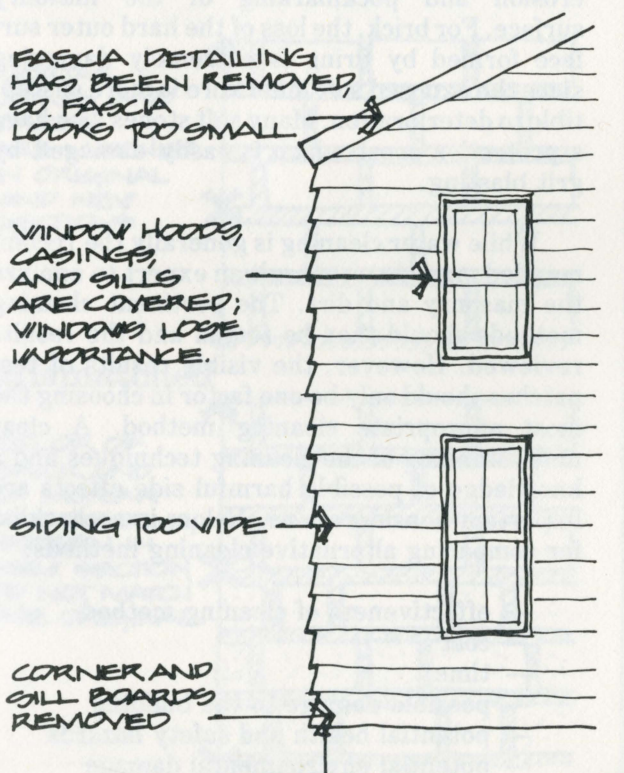 FASCIA DETAILING
HAS BEEN REMOVED,
SO FASCIA
LOOKS TOO SMALL
WINDOW HOODS,
CASINGS,
AND SILLS
ARE COVERED;
WINDOWS LOSE
IMPORTANCE.
SIDING TOO WIDE
CORNER AND
SILL BOARDS
REMOVED